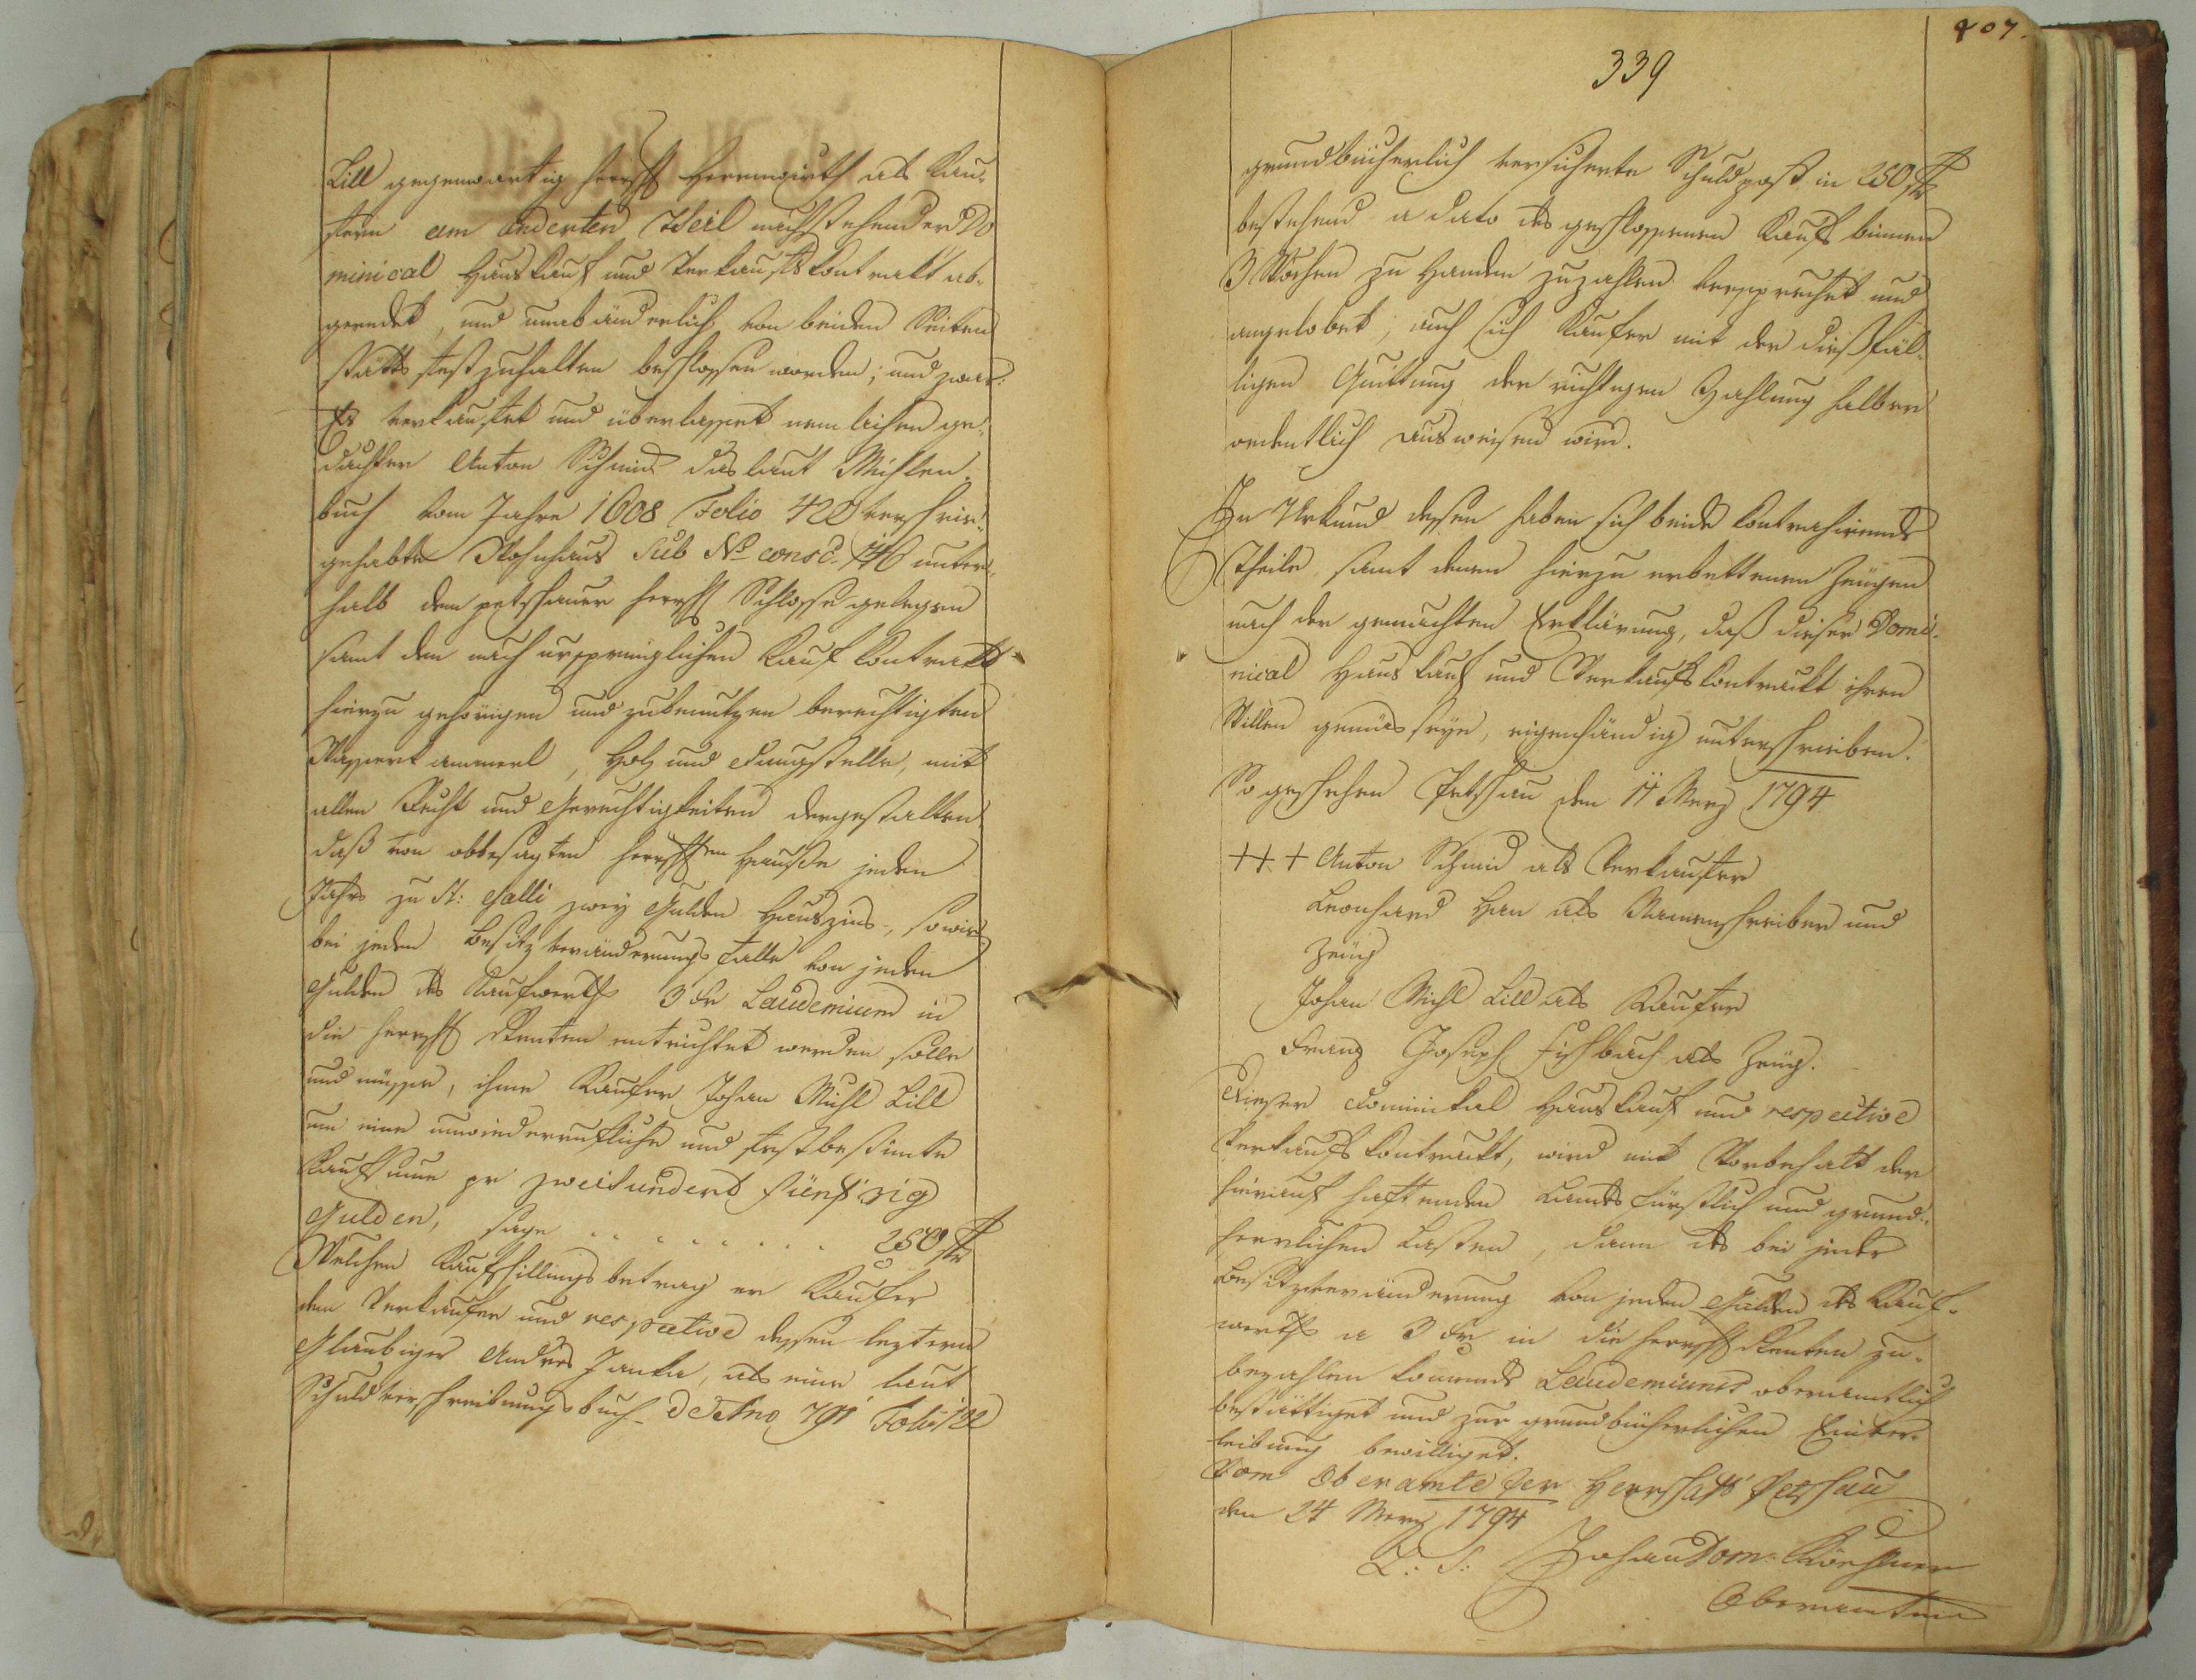 Lill gegenwärtig herrsch Herrenwirth als Kau¬
fern am anderten Theil nachstehender Do
minical Hauskauf und Verkaufskontrakt ab¬
geredet, und unabänderlich von beiden Seiten
stätts festzuhalten beschlossen worden; und zwar:
Es verkaufet und überlasset nemlichen ge¬
dachter Anton Schmid das laut Mühlen¬
buch vom Jahre 1608 Folio 420 verschrie¬
gehabte Wohnhaus Sub No consc. 146 unter¬
halb dem petschauer herrsch Schlosse gelegen
samt dem nach ursprünglichen Kauf Kontrakt
hierzu gehörigen und zubenutzen berechtigten
Wasserkammerl, Holz und Dungstelle, mit
allen Recht und Gerechtigkeiten dergestalten,
daß von obbesagten herrschen Hause jeden
Jahrs zu St: Galli zwey Gulden Hauszins, sowie
bei jedem Besitzveränderungsfalle von jeden
Gulden des Kaufwerths 3 Kr Laudemium in
die herrsch Renten entrichtet werden solle
und müsse, ihme Kaufer Johan Michl Lill
um eine unwiederrufliche und festbestimte
Kaufsume pr zweihundert fünfzig
Gulden, sage . . . . . . . . 250 f
Welchen Kaufschillingsbetrag er Kaufer
dem Verkaufer und respective dessen leztern
Glaubiger Andres Janka, als eine laut
Schuldverschreibungsbuch de Ano 791 Folio 122
407.
339
grundbücherlich versicherte Schuldpost in 250 f
bestehend a dato des geschlossenen Kaufs binnen
3 Wochen zu Handen zuzahlen versprechet und
angelobet, auch sich Kaufer mit der dießfäl¬
ligen Quittung der richtigen Zahlung halber
ordentlich ausweisen wird.
In Urkund dessen haben sich beide kontrahirende
Theile samt denen hierzu erbettenen Zeugen
nach der gemachten Erklärung, daß dieser Domi¬
nical Haus Kauf und Verkaufskontrackt ihren
Willen gemäs seye, eigenhändig unterschrieben.
So geschehen Petschau den 11 Merz 1794
+++ Anton Schmid als Verkaufer
Leonhard Han als Namenschreiber und
Zeug
Johan Michl Lill als Kaufer
Franz Joseph Fischbach als Zeug.
Dieser Dominikal Hauskauf und respective
Verkaufskontrackt, wird mit Vorbehalt der
hierauf haftenden Landsfürstlich und grund¬
herrlichen Lasten, dann des bei jeder
Besitzveränderung von jeden Gulden des Kauf¬
werths a 3 Kr in die herrsch Renten zu¬
bezahlen komende Laudemiums oberamtlich
bestättiget und zur grundbücherlichen Einver¬
leibung bewilliget.
Vom Oberamte der Herrschaft Petschau
den 24 Merz 1794
L: S: Johan Dom:
Oberamtmann